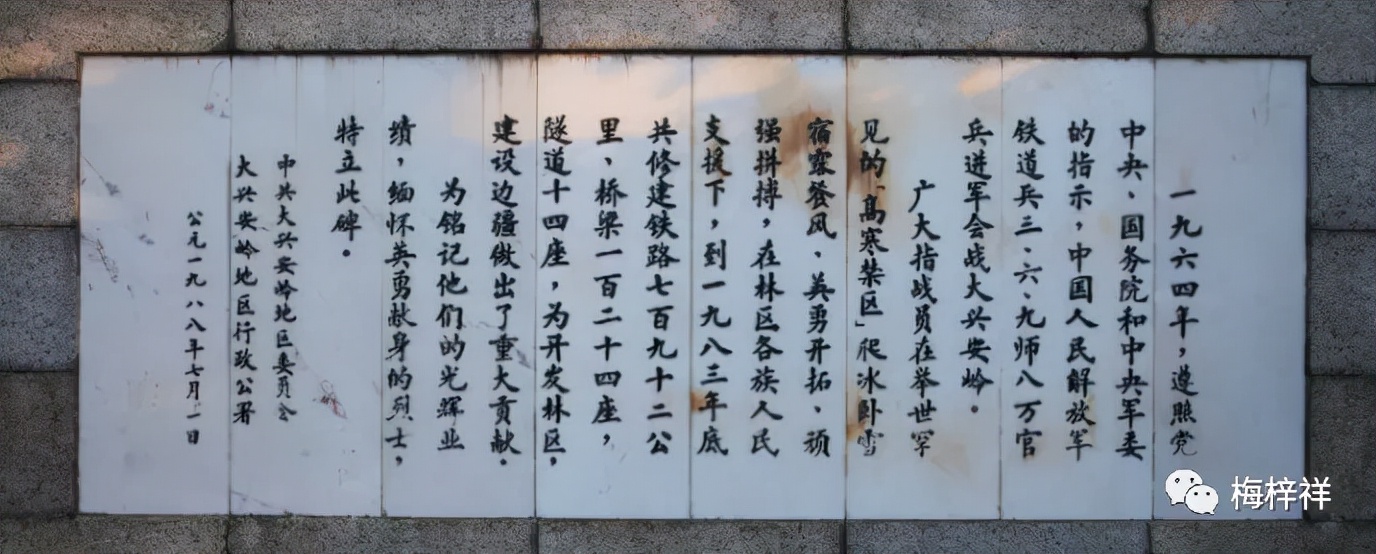 一九六四年，遵照党
中央、国务院和中央军委
的指示，中国人民解放军
铁道兵三、六、九师八万官
兵进军会战大兴安岭。
广大指战员在举世罕
见的“高寒禁区”爬冰卧雪
宿露餐风、英勇开拓、顽
强拼搏，在林区各族人民
支援下，到一九八三年底
共修建铁路七百九十二公
里、桥梁一百二十四座，
隧道十四座，为开发林区，
建设边疆做出了重大贡献。
为铭记他们的光辉业
绩，缅怀英勇献身的烈士，
特立此碑。
中共大兴安岭地区委员会
大兴安岭地区行政公署
公元一九八八年七月一日
梅梓祥